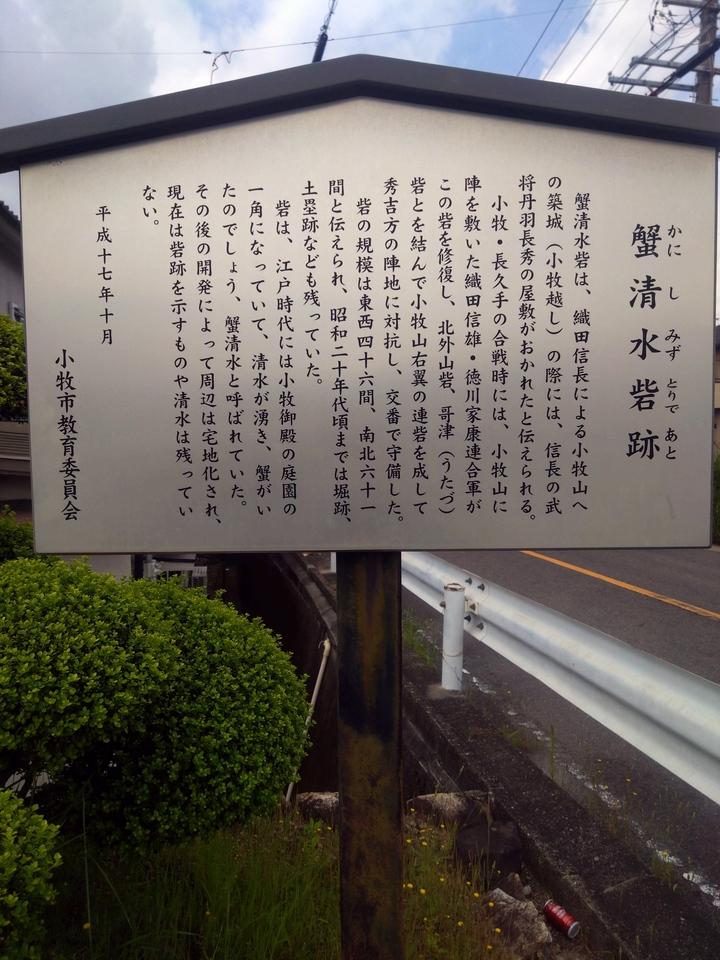 蟹清水砦跡
かに し みず とりで あと
蟹清水砦は、織田信長による小牧山へ
の築城（小牧越し）の際には、信長の武
将丹羽長秀の屋敷がおかれたと伝えられる。
小牧・長久手の合戦時には、小牧山に
陣を敷いた織田信雄・徳川家康連合軍が
この砦を修復し、北外山砦、哥津（うたづ）
砦とを結んで小牧山右翼の連砦を成して
秀吉方の陣地に対抗し、交番で守備した。
砦の規模は東西四十六間、南北六十一
間と伝えられ、昭和二十年代頃までは堀跡、
土塁跡なども残っていた。
砦は、江戸時代には小牧御殿の庭園の
一角になっていて、清水が湧き、蟹がい
たのでしょう、蟹清水と呼ばれていた。
その後の開発によって周辺は宅地化され、
現在は砦跡を示すものや清水は残ってい
ない。
平成十七年十月
小牧市教育委員会